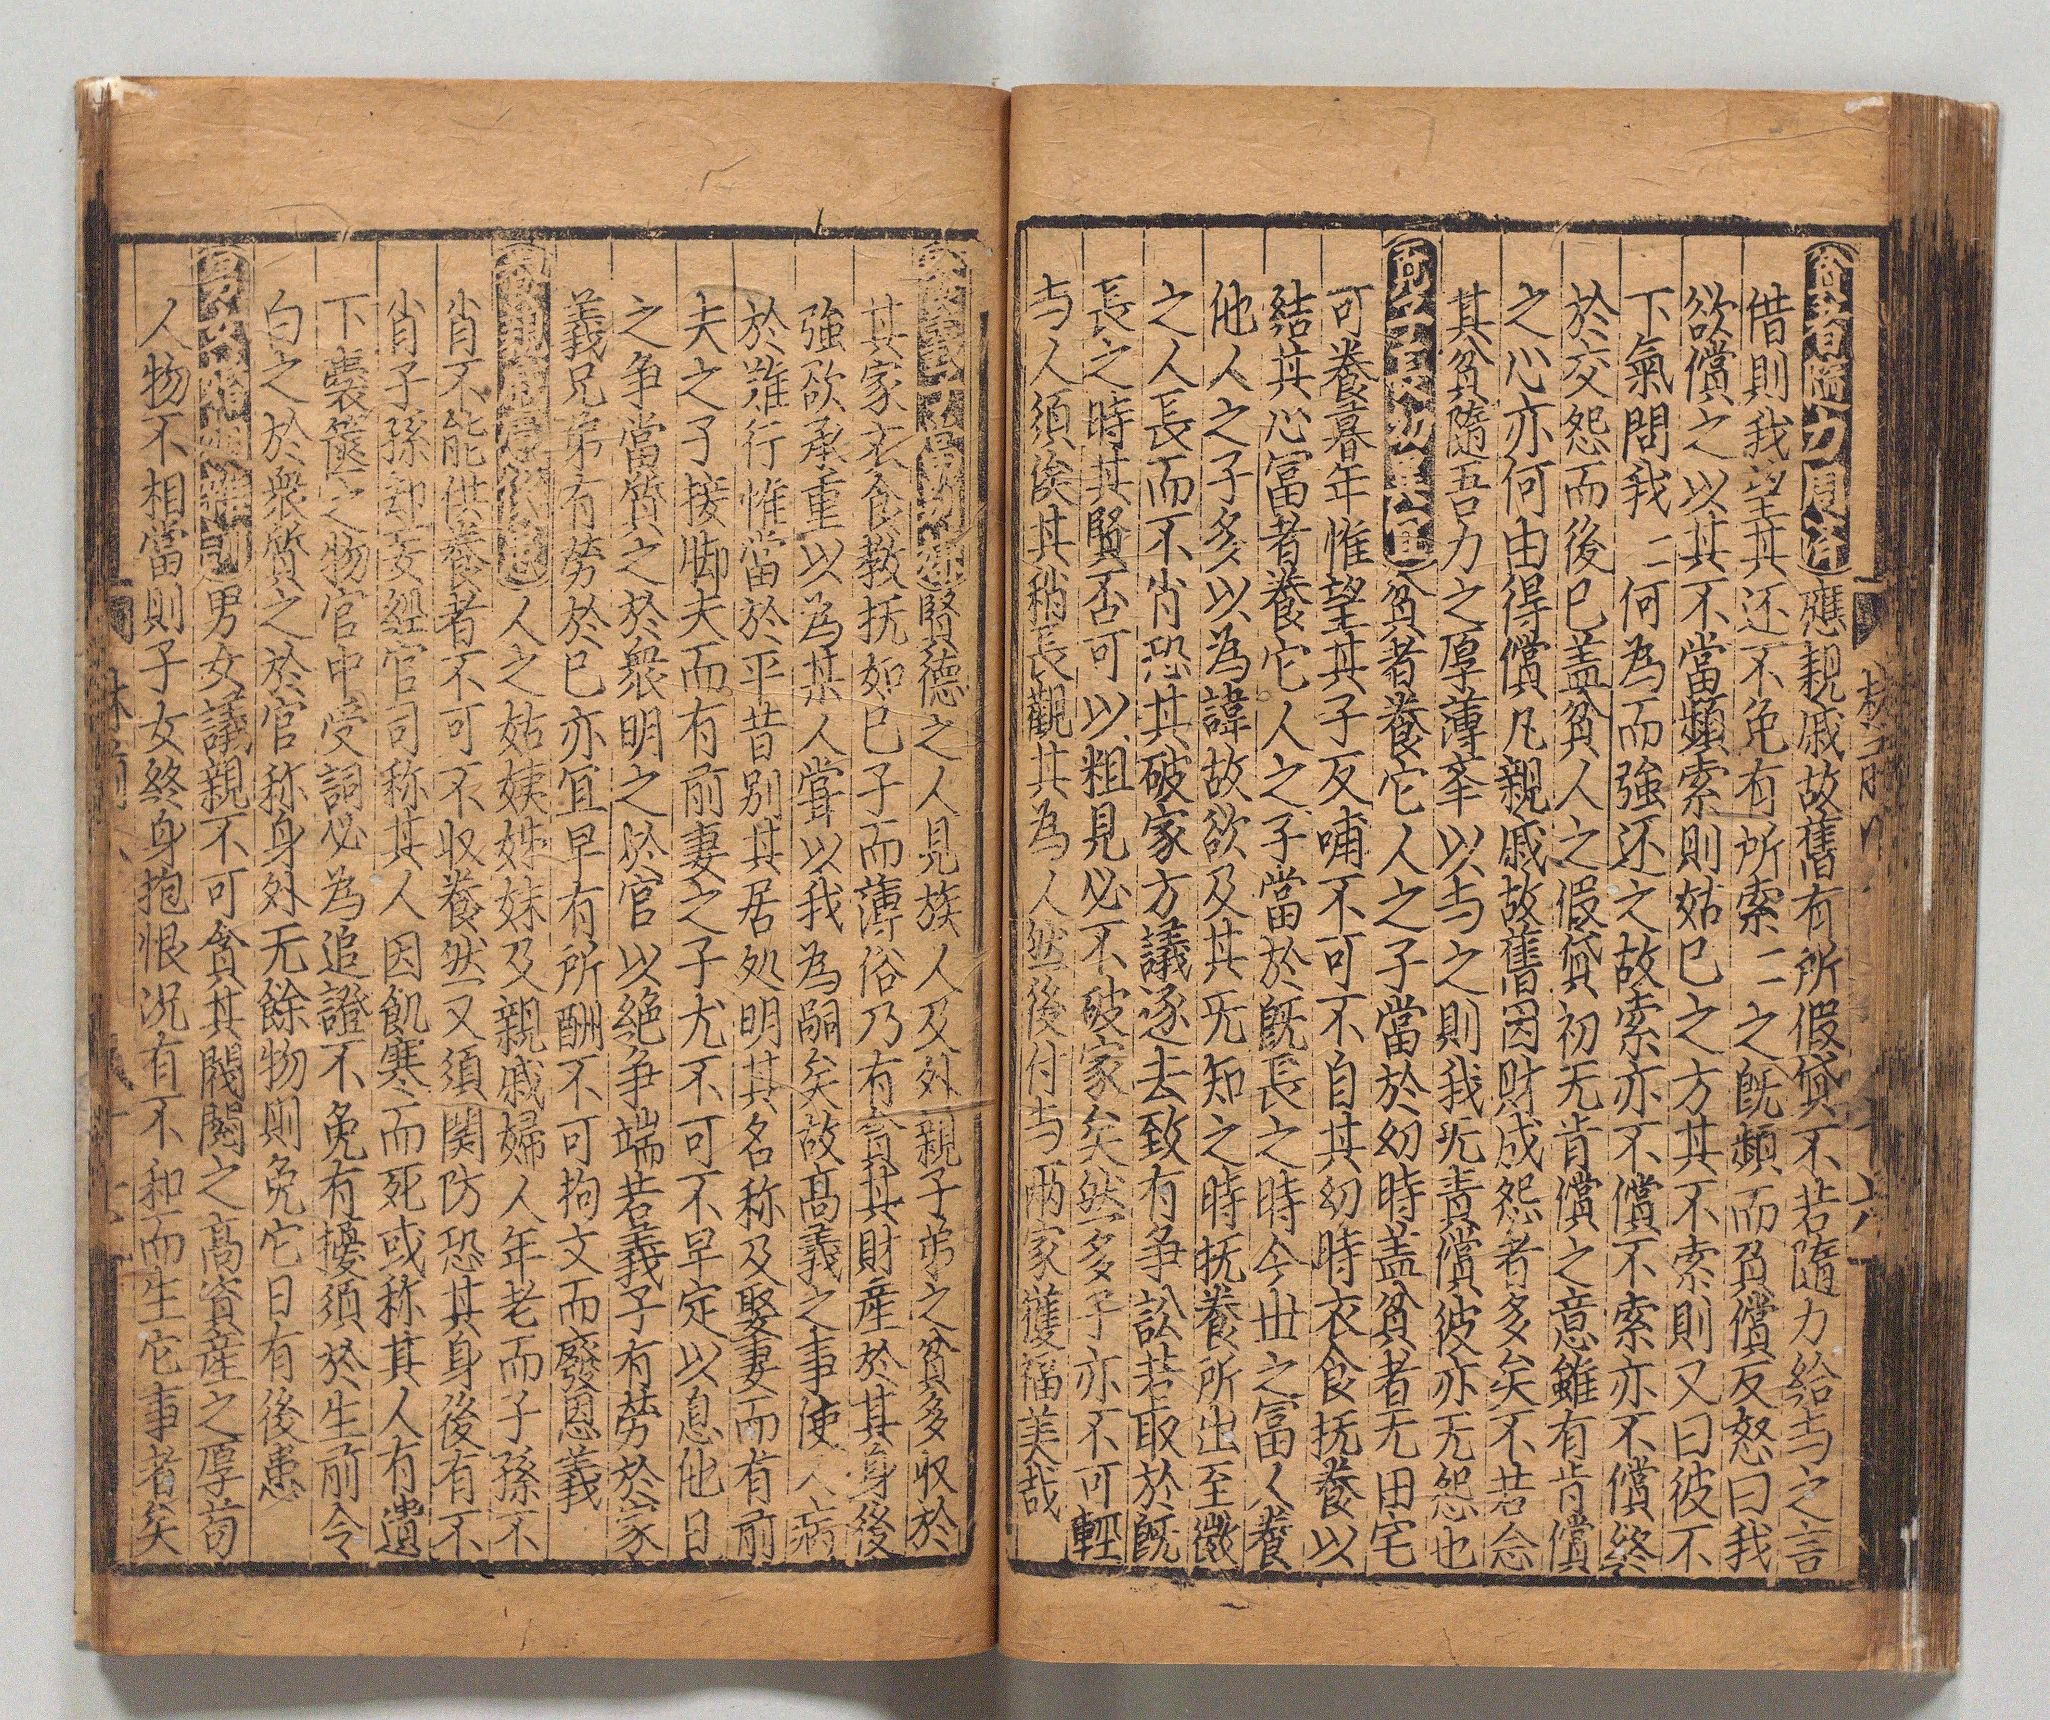 貧者隨力周濟應親戚故舊有所假貸不若隨力給与之言
借則我望其还不免有所索二之旣頻而負償反怒曰我
欲償之以其不當頻索則姑已之方其不索則又曰彼不
下氣問我二何為而強还之故索亦不償不索亦不償終
於交怨而後已盖貧人之假貸初无肯償之意雖有肯償
之心亦何由得償凡親戚故舊因財成怨者多矣不若念
其貧隨吾力之厚薄㪯以与之則我旡責償彼亦无怨也
貧者養它人之子當於幼時盖貧者无田宅
可養暮年惟望其子反哺不可不自其幼時衣食抚養以
結其心冨者養它人之子當於旣長之時今丗之冨人養
他人之子多以為諱故欲及其旡知之時抚養所出至微
之人長而不肖恐其破家方議逐去致有争訟若取於旣
長之時其賢否可以粗見必不破家矣然多子亦不可輕
与人須俟其稍長觀其為人然後付与两家獲福美哉
賢德之人見族人及外親子弟之貧多収於
其家衣食教抚如已子而薄俗乃有貪其財産於其身後
強欲承重以為某人甞以我為嗣矣故高義之事使人病
於難行惟當於平昔别其居処明其名称及娶妻而有前
夫之子接脚夫而有前妻之子尤不可不早定以息他日
之争當質之於衆明之於官以絶争端若義子有劳於家
義兄弟有劳於已亦宜早有所酬不可拘文而廢恩義
人之姑姨姊妹及親戚婦人年老而子孫不
肖不能供養者不可不収養然又須関防恐其身後有不
肖子孫却妄經官司称其人因飢寒而死或称其人有遺
下囊篋之物官中受詞必為追證不免有擾須於生前令
白之於衆質之於官称身外无餘物則免它日有後患
男女議親不可貪其閥閲之高資産之厚苟
人物不相當則子女終身抱恨况有不和而生它事者矣